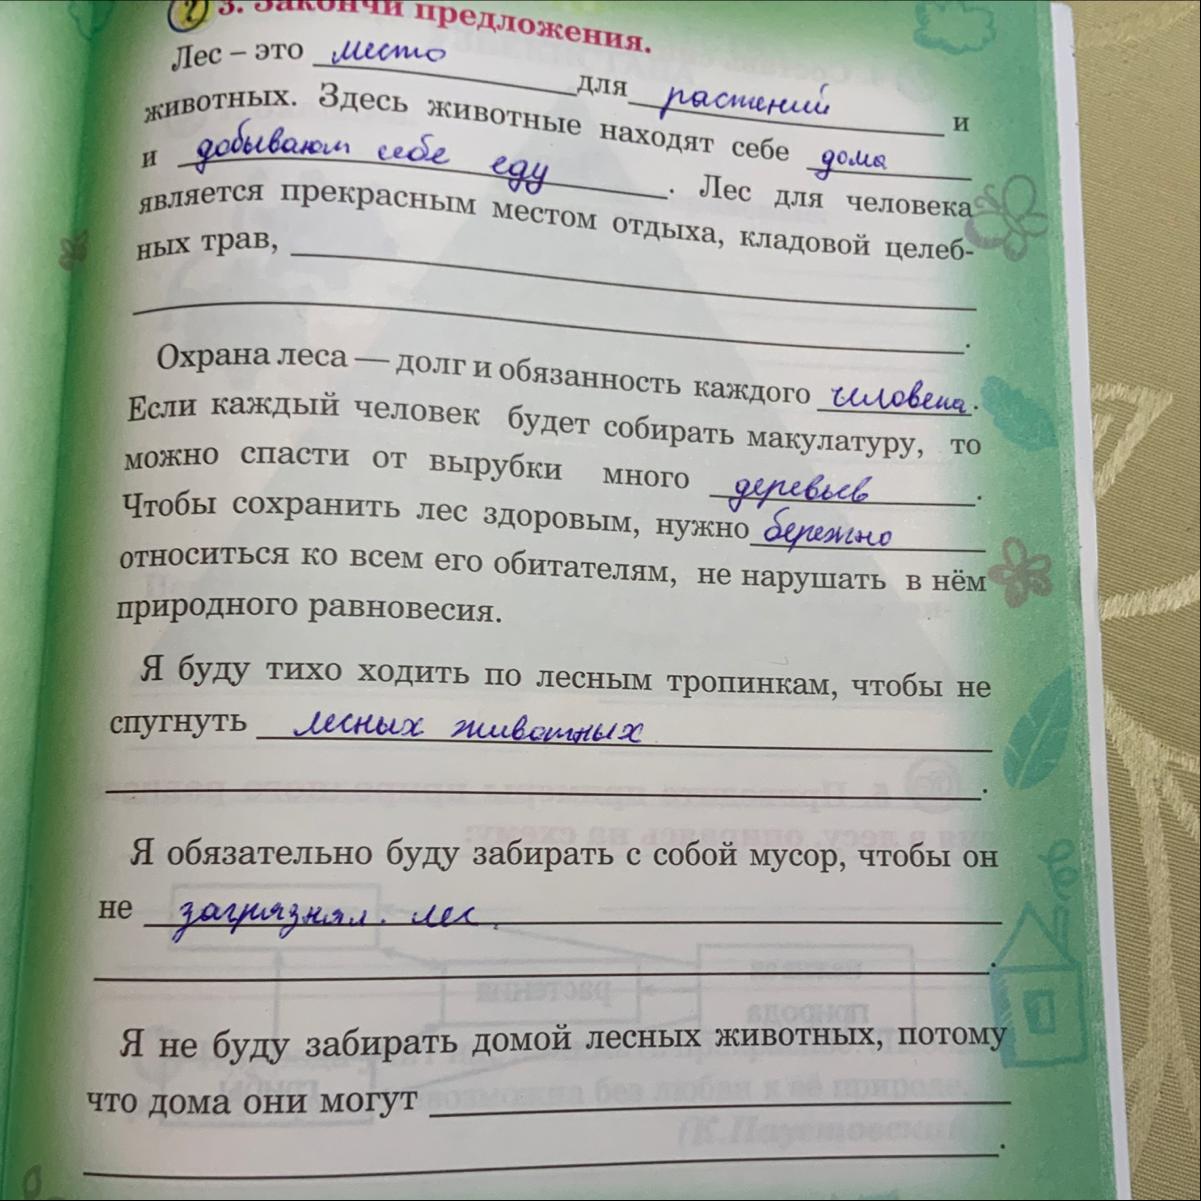 3. Закончи предложения.
Лес – это место для растений и
животных. Здесь животные находят себе дома
и добывают себе еду. Лес для человека
является прекрасным местом отдыха, кладовой целеб-
ных трав,
.
Охрана леса — долг и обязанность каждого человека.
Если каждый человек будет собирать макулатуру, то
можно спасти от вырубки много деревьев.
Чтобы сохранить лес здоровым, нужно бережно
относиться ко всем его обитателям, не нарушать в нём
природного равновесия.
Я буду тихо ходить по лесным тропинкам, чтобы не
спугнуть лесных животных
.
Я обязательно буду забирать с собой мусор, чтобы он
не загрязнял. лес.
.
Я не буду забирать домой лесных животных, потому
что дома они могут
.